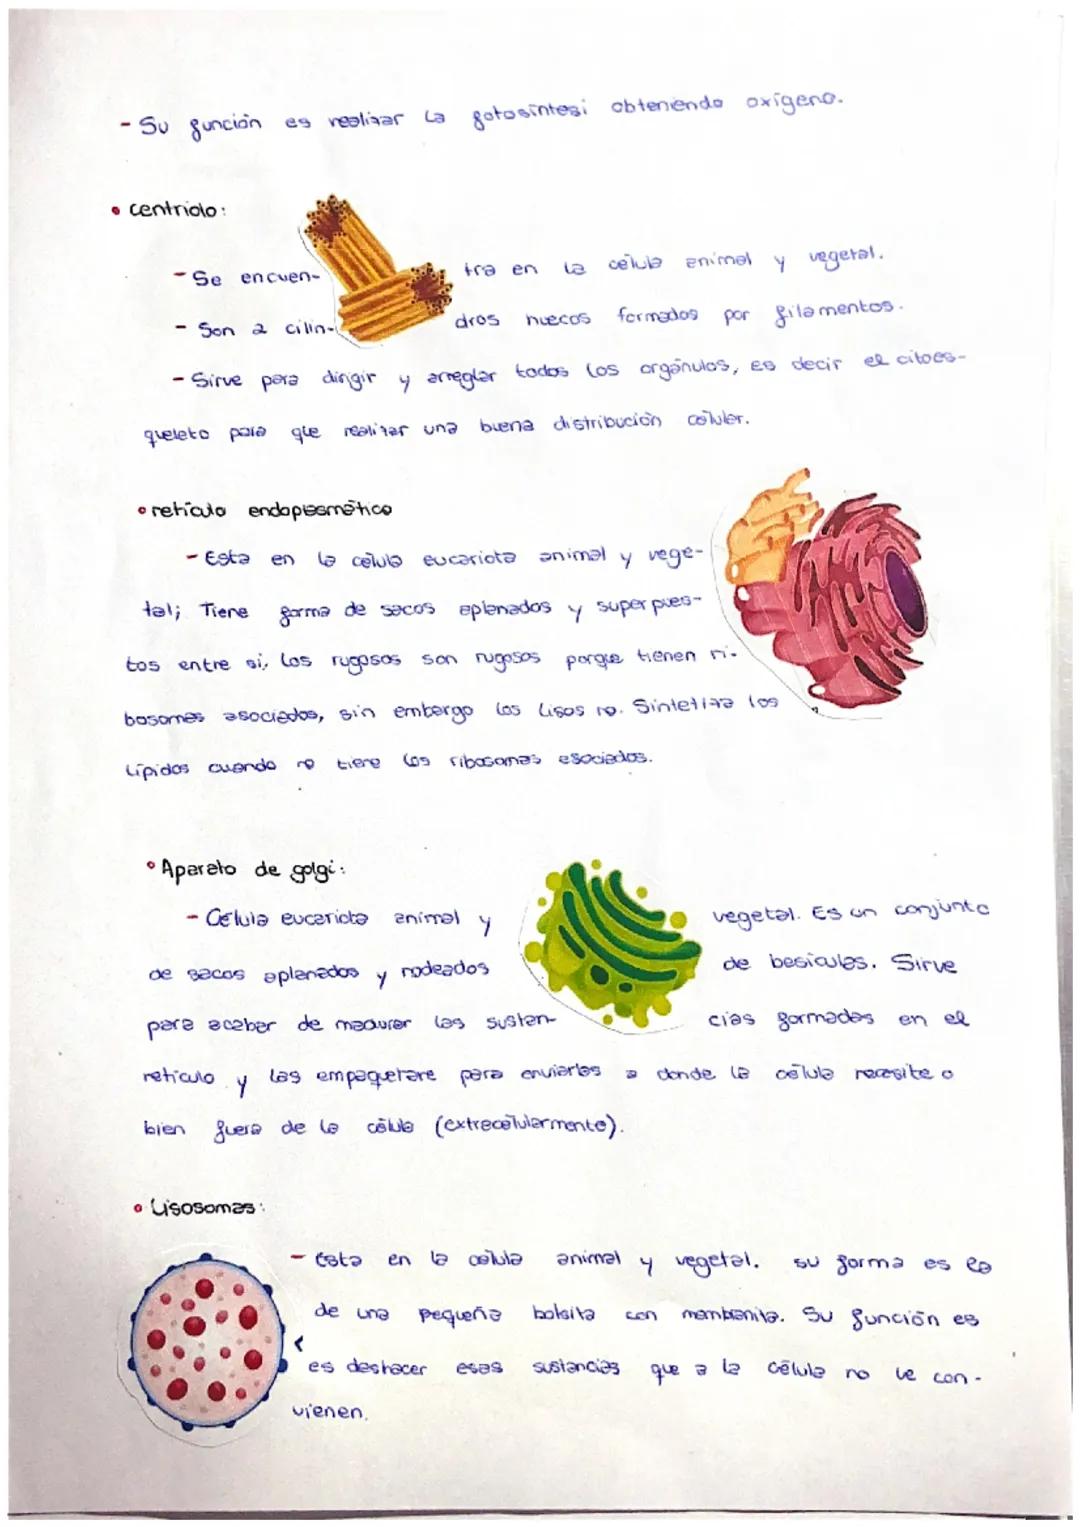 - Su función es realizar la fotosíntesi obteniendo oxígeno.
• centriolo:
- Se encuen- tra en la célula animal y vegetal.
- Son 2 cilin- dros huecos formados por filamentos.
- Sirve para dirigir y arreglar todos los orgánulos, es decir el citoes-
queleto para que realizar una buena distribución celular.
• retículo endoplasmático
- Esta en la célula eucariota animal y vege-
tal; Tiene forma de sacos aplanados y superpues-
tos entre si, los rugosos son rugosos porque tienen ri-
bosomas asociados, sin embargo los lisos no. Sintetiza los
lípidos cuando no tiene los ribosomas asociados.
• Aparato de golgi:
- Célula eucariota animal y vegetal. Es un conjunto
de sacos aplanados y rodeados de besículas. Sirve
para acabar de madurar las sustan- cias formadas en el
retículo y las empaquetare para enviarlas a donde la célula necesite o
bien fuera de la célula (extracelularmente).
• Lisosomas:
- Esta en la célula animal y vegetal. su forma es la
de una pequeña bolsita con membranita. Su función es
es deshacer esas sustancias que a la célula no le con-
vienen.